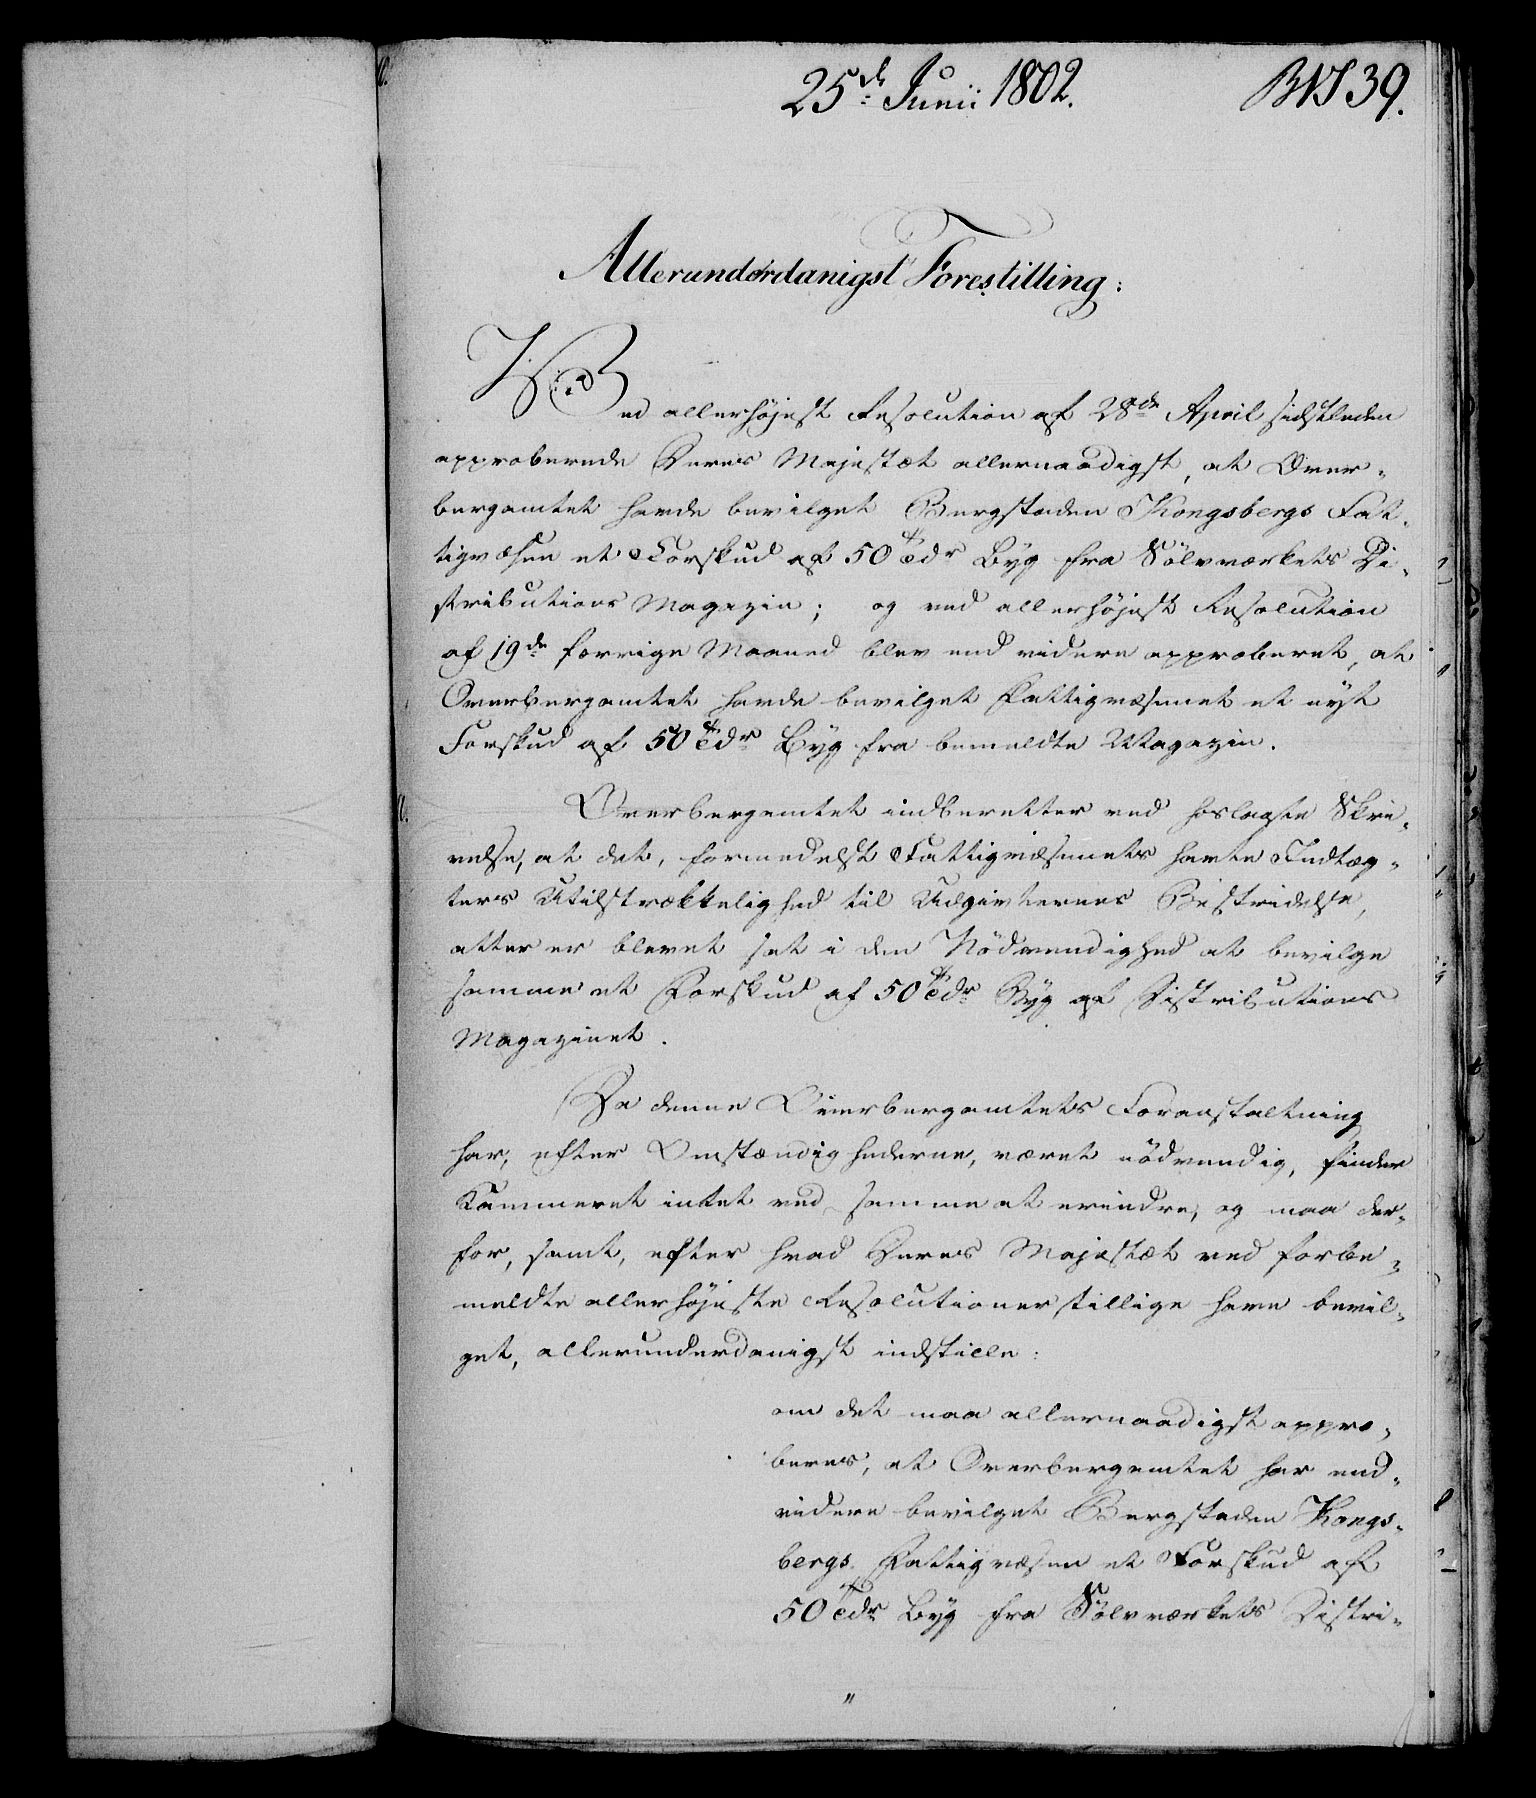 25de Junii 1802.
BVS 39.
Allerunderdanigst Forestilling:
Ved allerhöjest Resolution af 28de April sidstleden
approberede Deres Majestæt allernaadigst, at Over-
bergamtet havde bevilget Bergstaden Kongsbergs Fat-
tigvæsen et Forskud af 50 Tdr Byg fra Sölvværkets Di-
stributions Magazin; og ved allerhöjest Resolution
af 19de forrige Maaned blev end videre approberet, at
Overbergamtet havde bevilget Fattigvæsenet et nyt
Forskud af 50 Tdr Byg fra bemeldte Magazin.
Overbergamtet indberetter ved hoslagte Skri-
velse, at det, formedelst Fattigvæsenets havte Indtæg-
ters Utilstrækkelighed til Udgivternes Bestridelse,
atter er blevet sat i den Nödvendighed at bevilge
samme et Forskud af 50 Tdr Byg af Distributions
Magazinet.
Da denne Overbergamtets Foranstaltning
har, efter Omstændighederne, været nödvendig, finder
Kammeret intet ved samme at erindre, og maa der-
for, samt, efter hvad Deres Majestæt ved forbe-
meldte allerhöjeste Resolutioner tillige have bevil-
get, allerunderdanigst indstille:
om det maa allernaadigst appro-
beres, at Overbergamtet har end-
videre bevilget Bergstaden Kongs-
bergs Fattigvæsen et Forskud af
50 Tdr Byg fra Sölvværkets Distri-